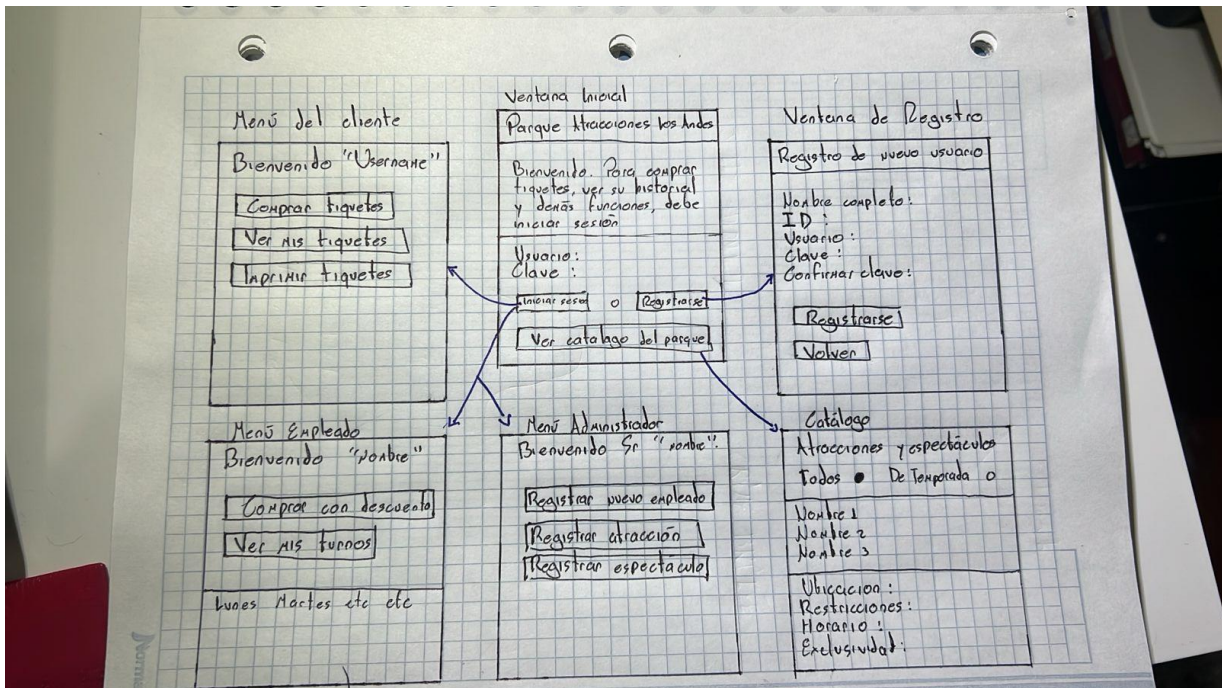 Menú del cliente
Bienvenido "Username"
Comprar tiquetes
Ver mis tiquetes
Imprimir tiquetes
Ventana Inicial
Parque Atracciones los Andes
Bienvenido. Para comprar
tiquetes, ver su historial
y demás funciones, debe
iniciar sesión
Usuario:
Clave :
Iniciar sesion o Registrarse
Ver catalago del parque
Ventana de Registro
Registro de nuevo usuario
Nombre completo:
ID :
Usuario :
Clave :
Confirmar clave:
Registrarse
Volver
Menú Empleado
Bienvenido "Nombre"
Comprar con descuento
Ver mis turnos
Lunes Martes etc etc
Menú Administrador
Bienvenido Sr "nombre".
Registrar nuevo empleado
Registrar atracción
Registrar espectáculo
Catálogo
Atracciones y espectáculos
Todos De Temporada
Nombre 1
Nombre 2
Nombre 3
Ubicacion :
Restricciones :
Horario :
Exclusividad :
Norma